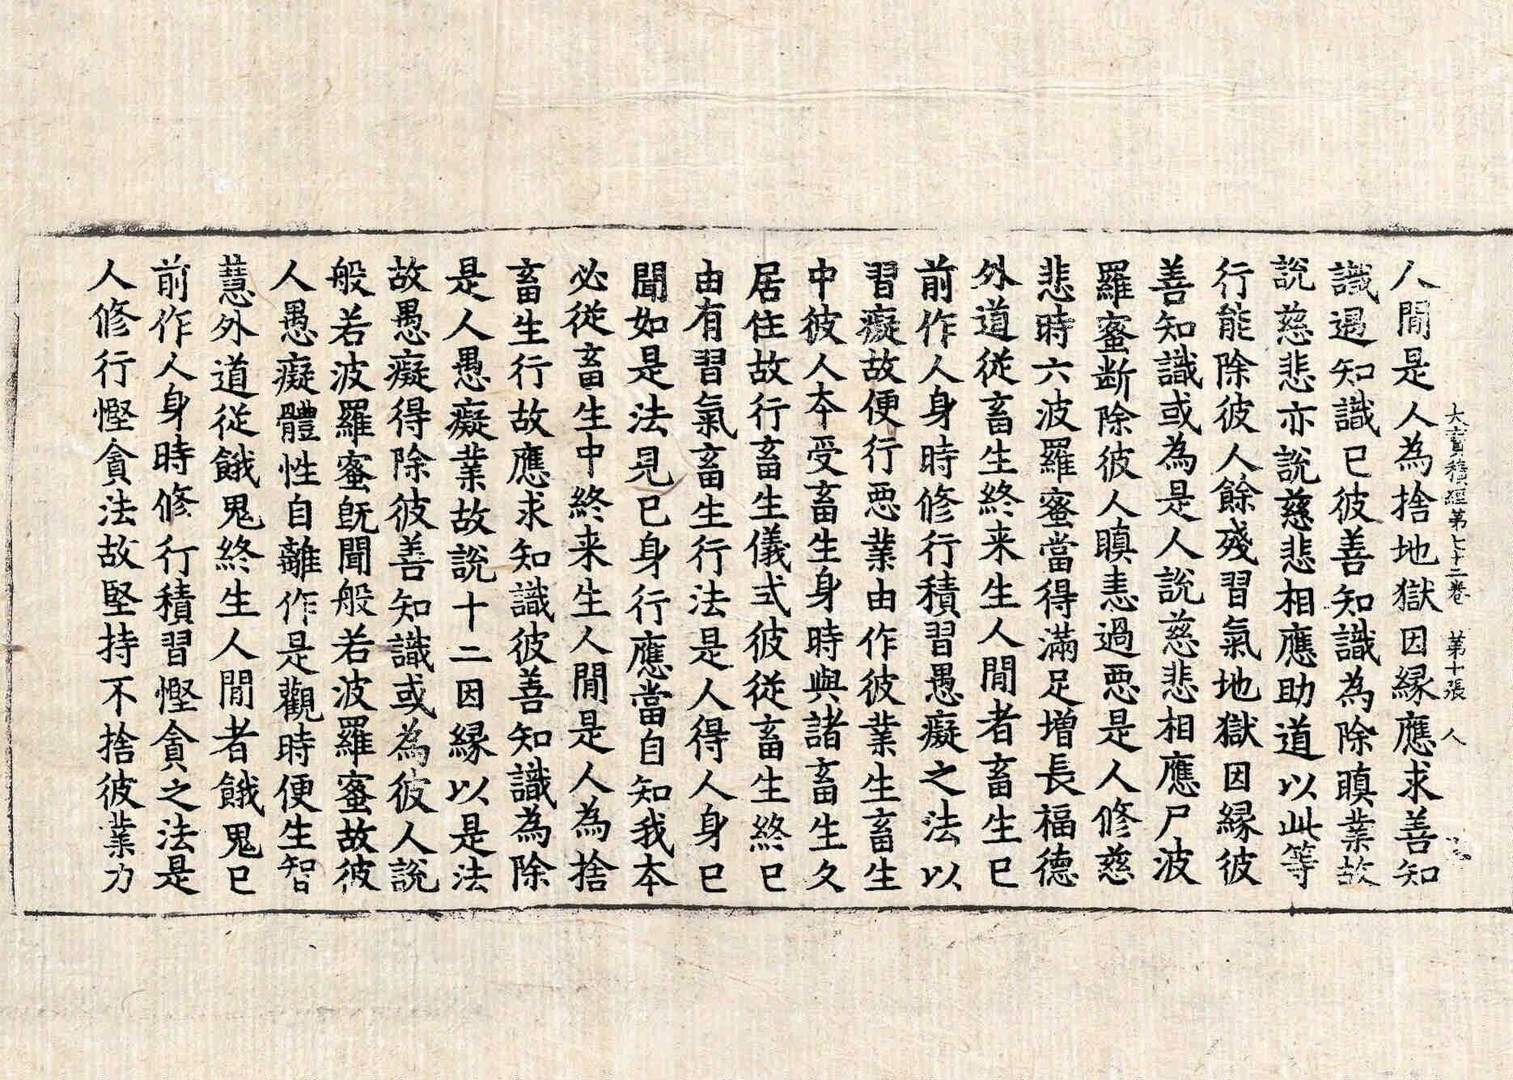 大寶積經第七十二卷　第十張　人
人閒是人為捨地獄因縁應求善知
識遇知識已彼善知識為除瞋業故
說慈悲亦說慈悲相應助道以此等
行能除彼人餘殘習氣地獄因縁彼
善知識或為是人說慈悲相應尸波
羅蜜断除彼人瞋恚過惡是人修慈
悲時六波羅蜜當得滿足增長福德
外道從畜生終来生人閒者畜生已
前作人身時修行積習愚癡之法以
習癡故便行惡業由作彼業生畜生
中彼人夲受畜生身時與諸畜生久
居住故行畜生儀式彼從畜生終已
由有習氣畜生行法是人得人身已
聞如是法見已身行應當自知我夲
必従畜生中終来生人閒是人為捨
畜生行故應求知識彼善知識為除
是人愚癡業故說十二因縁以是法
故愚癡得除彼善知識或為彼人說
般若波羅蜜旣聞般若波羅蜜故彼
人愚癡體性自離作是觀時便生智
慧外道從餓鬼終生人閒者餓鬼已
前作人身時修行積習慳貪之法是
人修行慳貪法故堅持不捨彼業力